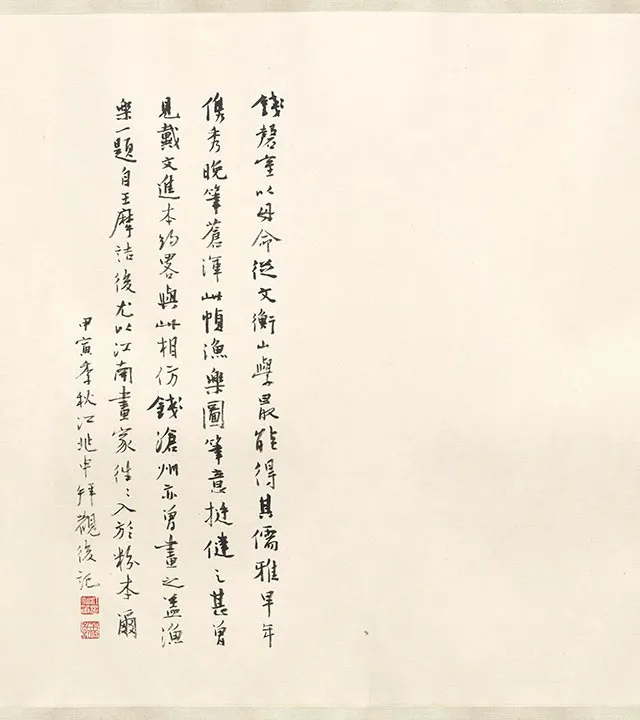 錢磬室以母命從文衡山學最能得其儒雅早年
雋秀晚筆蒼渾此幀漁樂圖筆意挺健之甚曾
見戴文進本約畧與此相仿錢滄州亦曾畫之蓋漁
樂一題自王摩詰後尤以江南畫家徃〻入於粉本爾
甲寅季秋江兆申拜觀後記